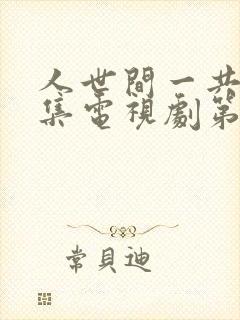 人世間一共
集電視劇第
常貝迪